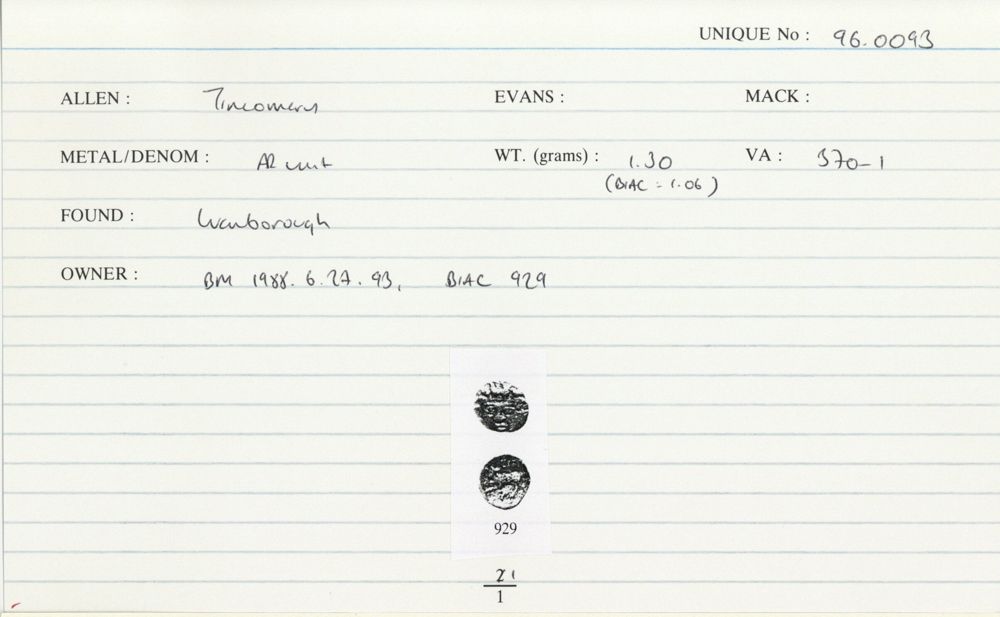 UNIQUE No : 96.0093
ALLEN : Tincomarus EVANS : MACK :
METAL/DENOM : AR unit WT. (grams) : 1.30 VA : 370-1
(BIAC = 1.06)
FOUND : Wanborough
OWNER : BM 1988.6.27.93, BIAC 929
929
1